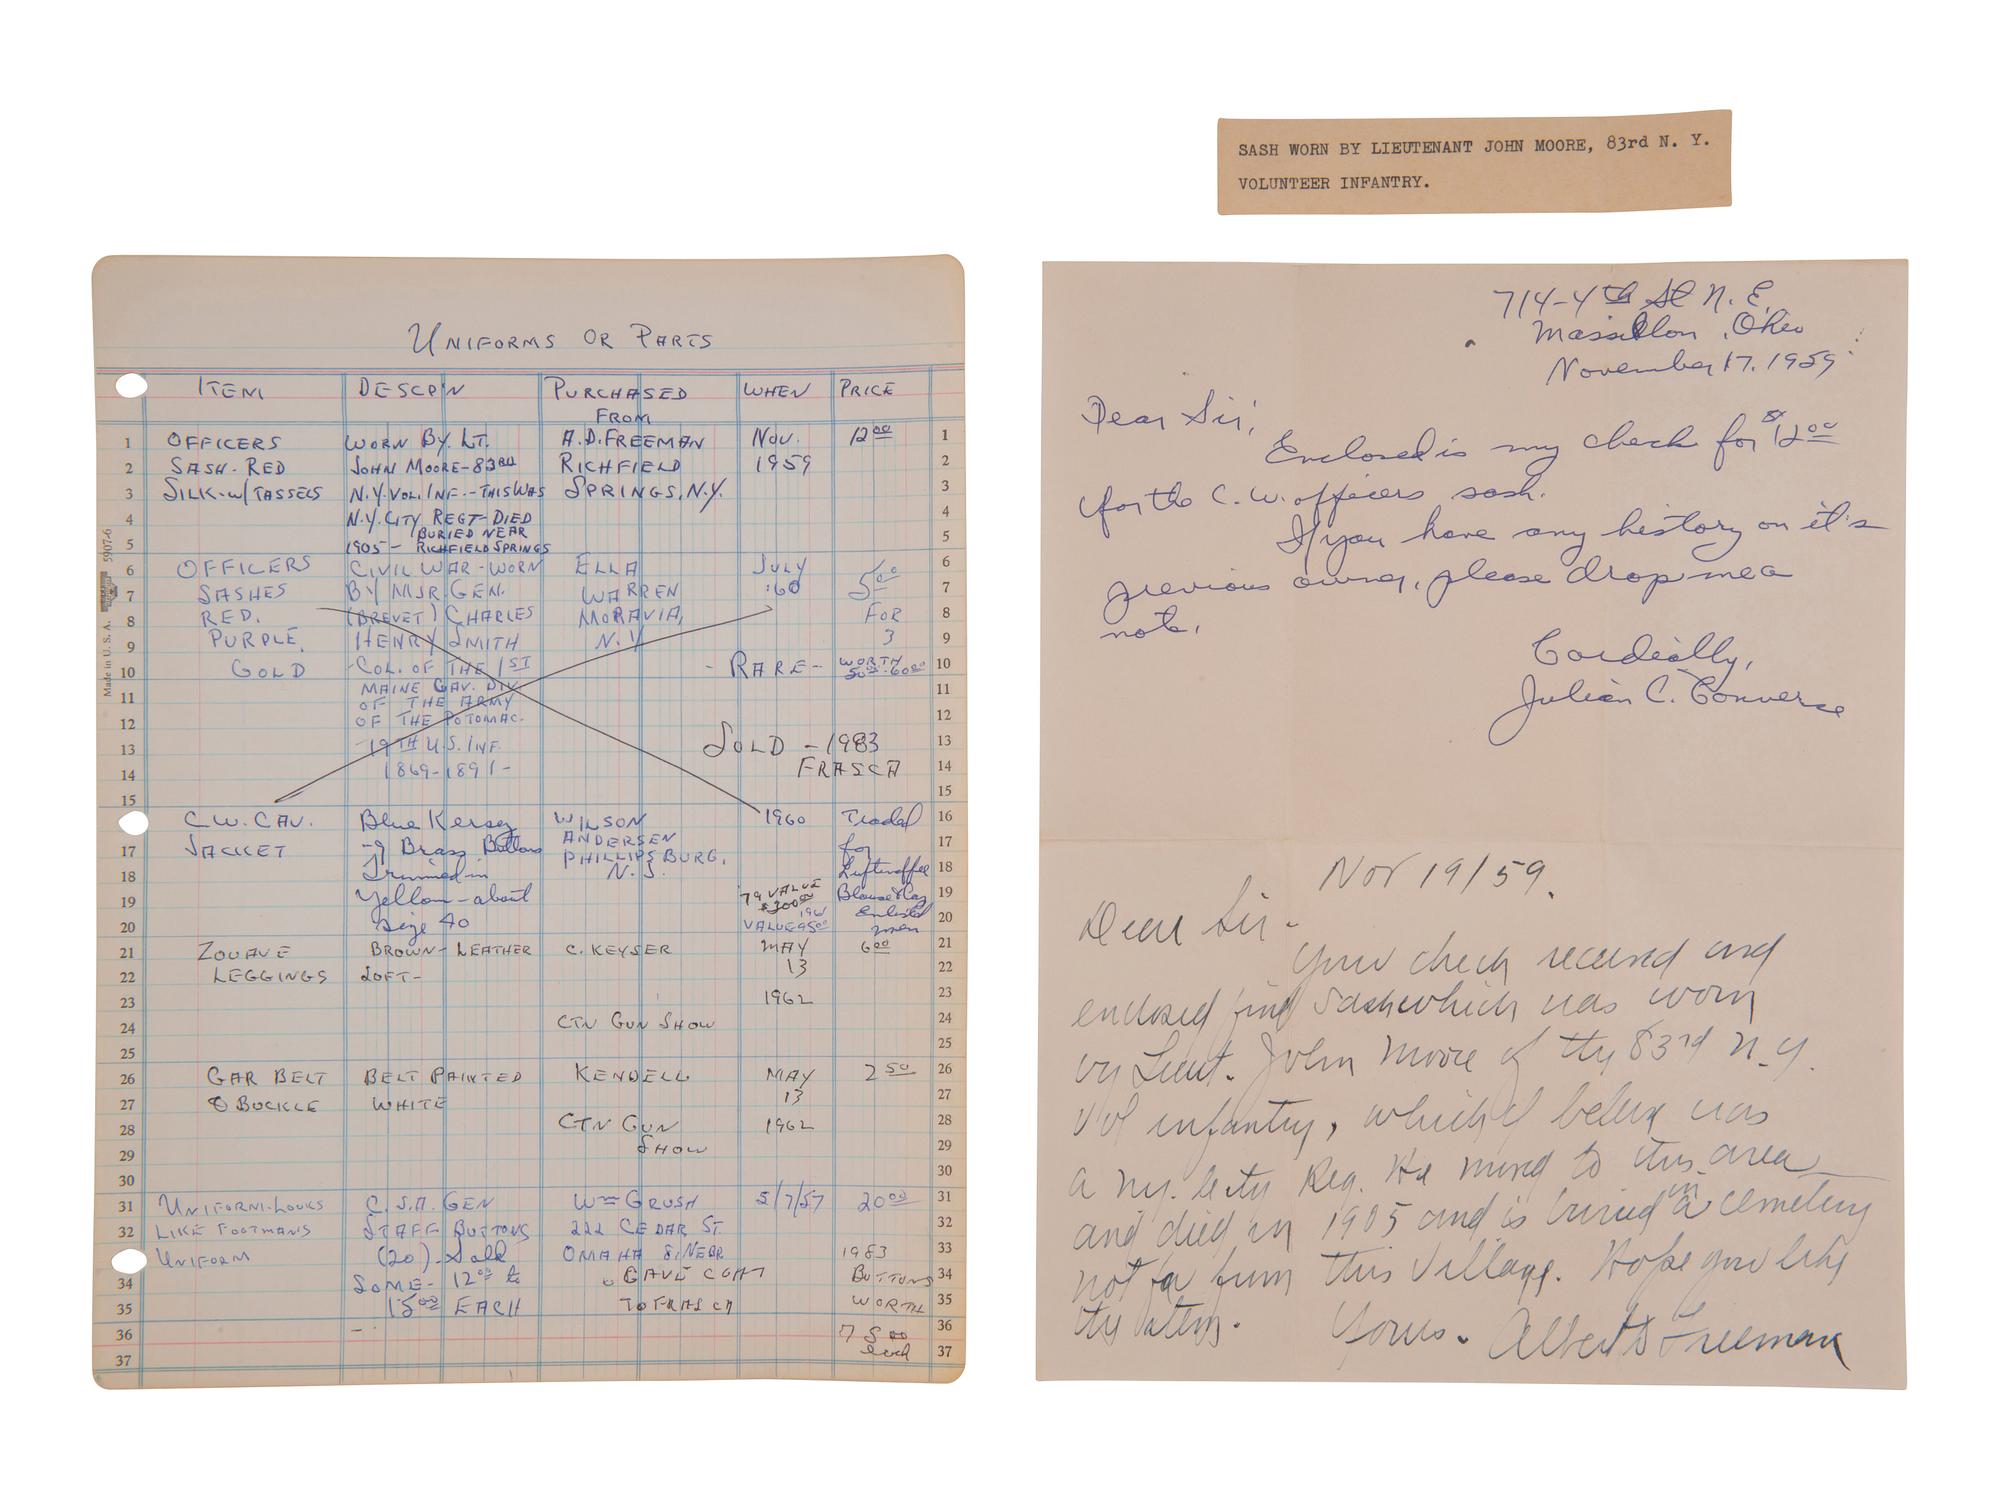 SASH WORN BY LIEUTENANT JOHN MOORE, 83rd N. Y.
VOLUNTEER INFANTRY.
UNIFORMS OR PARTS
ITEM DESCP'N PURCHASED FROM WHEN PRICE
1 OFFICERS WORN BY. LT. A.D. FREEMAN NOV. 12 00 1
2 SASH-RED JOHN MOORE-83RD RICHFIELD 1959 2
3 SILK-W/TASSELS N.Y. VOL. INF.-THIS WAS SPRINGS, N.Y. 3
4 N.Y. CITY REGT-DIED 4
BURIED NEAR
5 1905- RICHFIELD SPRINGS 5
6 OFFICERS CIVIL WAR-WORN ELLA JULY 5 00 6
7 SASHES BY MJR. GEN. WARREN '60 7
8 RED. (BREVET) CHARLES MORAVIA, FOR 8
9 PURPLE, HENRY SMITH N.Y. 3 9
10 GOLD -COL. OF THE 1ST -RARE- WORTH 50 00-60 00 10
11 MAINE CAV. DIV. 11
OF THE ARMY
12 OF THE POTOMAC- 12
13 -19TH U.S. INF. SOLD -1983 13
14 1869-1891- FRASCA 14
15 15
16 C.W. CAV. Blue Kersey WILSON 1960 Traded 16
17 JACKET -9 Brass Buttons ANDERSEN for 17
18 Trimmed in PHILLIPSBURG, N.J. Luftwaffe 18
19 Yellow-about 79 VALUE $300 00 Blouse & Cap 19
20 Size 40 1961 VALUE 95 00 Enlisted men 20
21 ZOUAVE BROWN-LEATHER C. KEYSER MAY 6 00 21
22 LEGGINGS SOFT- 13 22
23 1962 23
24 CTN GUN SHOW 24
25 25
26 GAR BELT BELT PAINTED KENDELL MAY 2 50 26
27 & BUCKLE WHITE 13 27
28 CTN GUN 1962 28
29 SHOW 29
30 30
31 UNIFORM-LOOKS C.S.A. GEN WM GRUSH 5/7/57 20 00 31
32 LIKE FOOTMANS STAFF BUTTONS 222 CEDAR ST. 32
UNIFORM (20). Sold OMAHA 8, NEBR 1983 33
34 SOME- 12 00 to GAVE COAT BUTTONS 34
35 15 00 EACH TO FRASCA WORTH 35
36 75 00 36
37 each 37
Made in U.S.A. 5907-6
714-4th St N.E.
Massillon, Ohio
November 17, 1959
Dear Sir;
Enclosed is my check for $12 00
for the C.W. officers sash.
If you have any history on it's
previous owner, please drop me a
note.
Cordially,
Julian C. Converse
Nov 19/59.
Dear Sir-
Your check received and
enclosed find sash which was worn
by Lieut. John Moore of the 83rd N.Y.
Vol infantry, which I believe was
a N.Y. City Reg. He moved to this area
and died in 1905 and is buried in a cemetery
not far from this Village. Hope you like
the item. Yours. Albert D Freeman